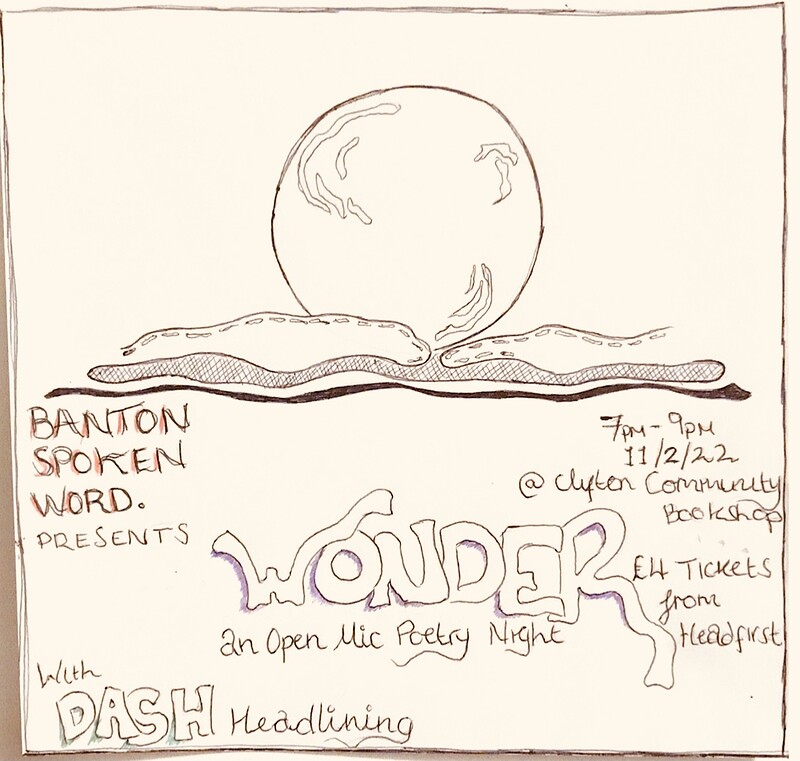 BANTON
SPOKEN
WORD.
PRESENTS
7pm - 9pm
11/2/22
@ Clyfton Community
Bookshop
WONDER
an Open Mic Poetry Night
£4 Tickets
from
Headfirst
With
DASH Headlining